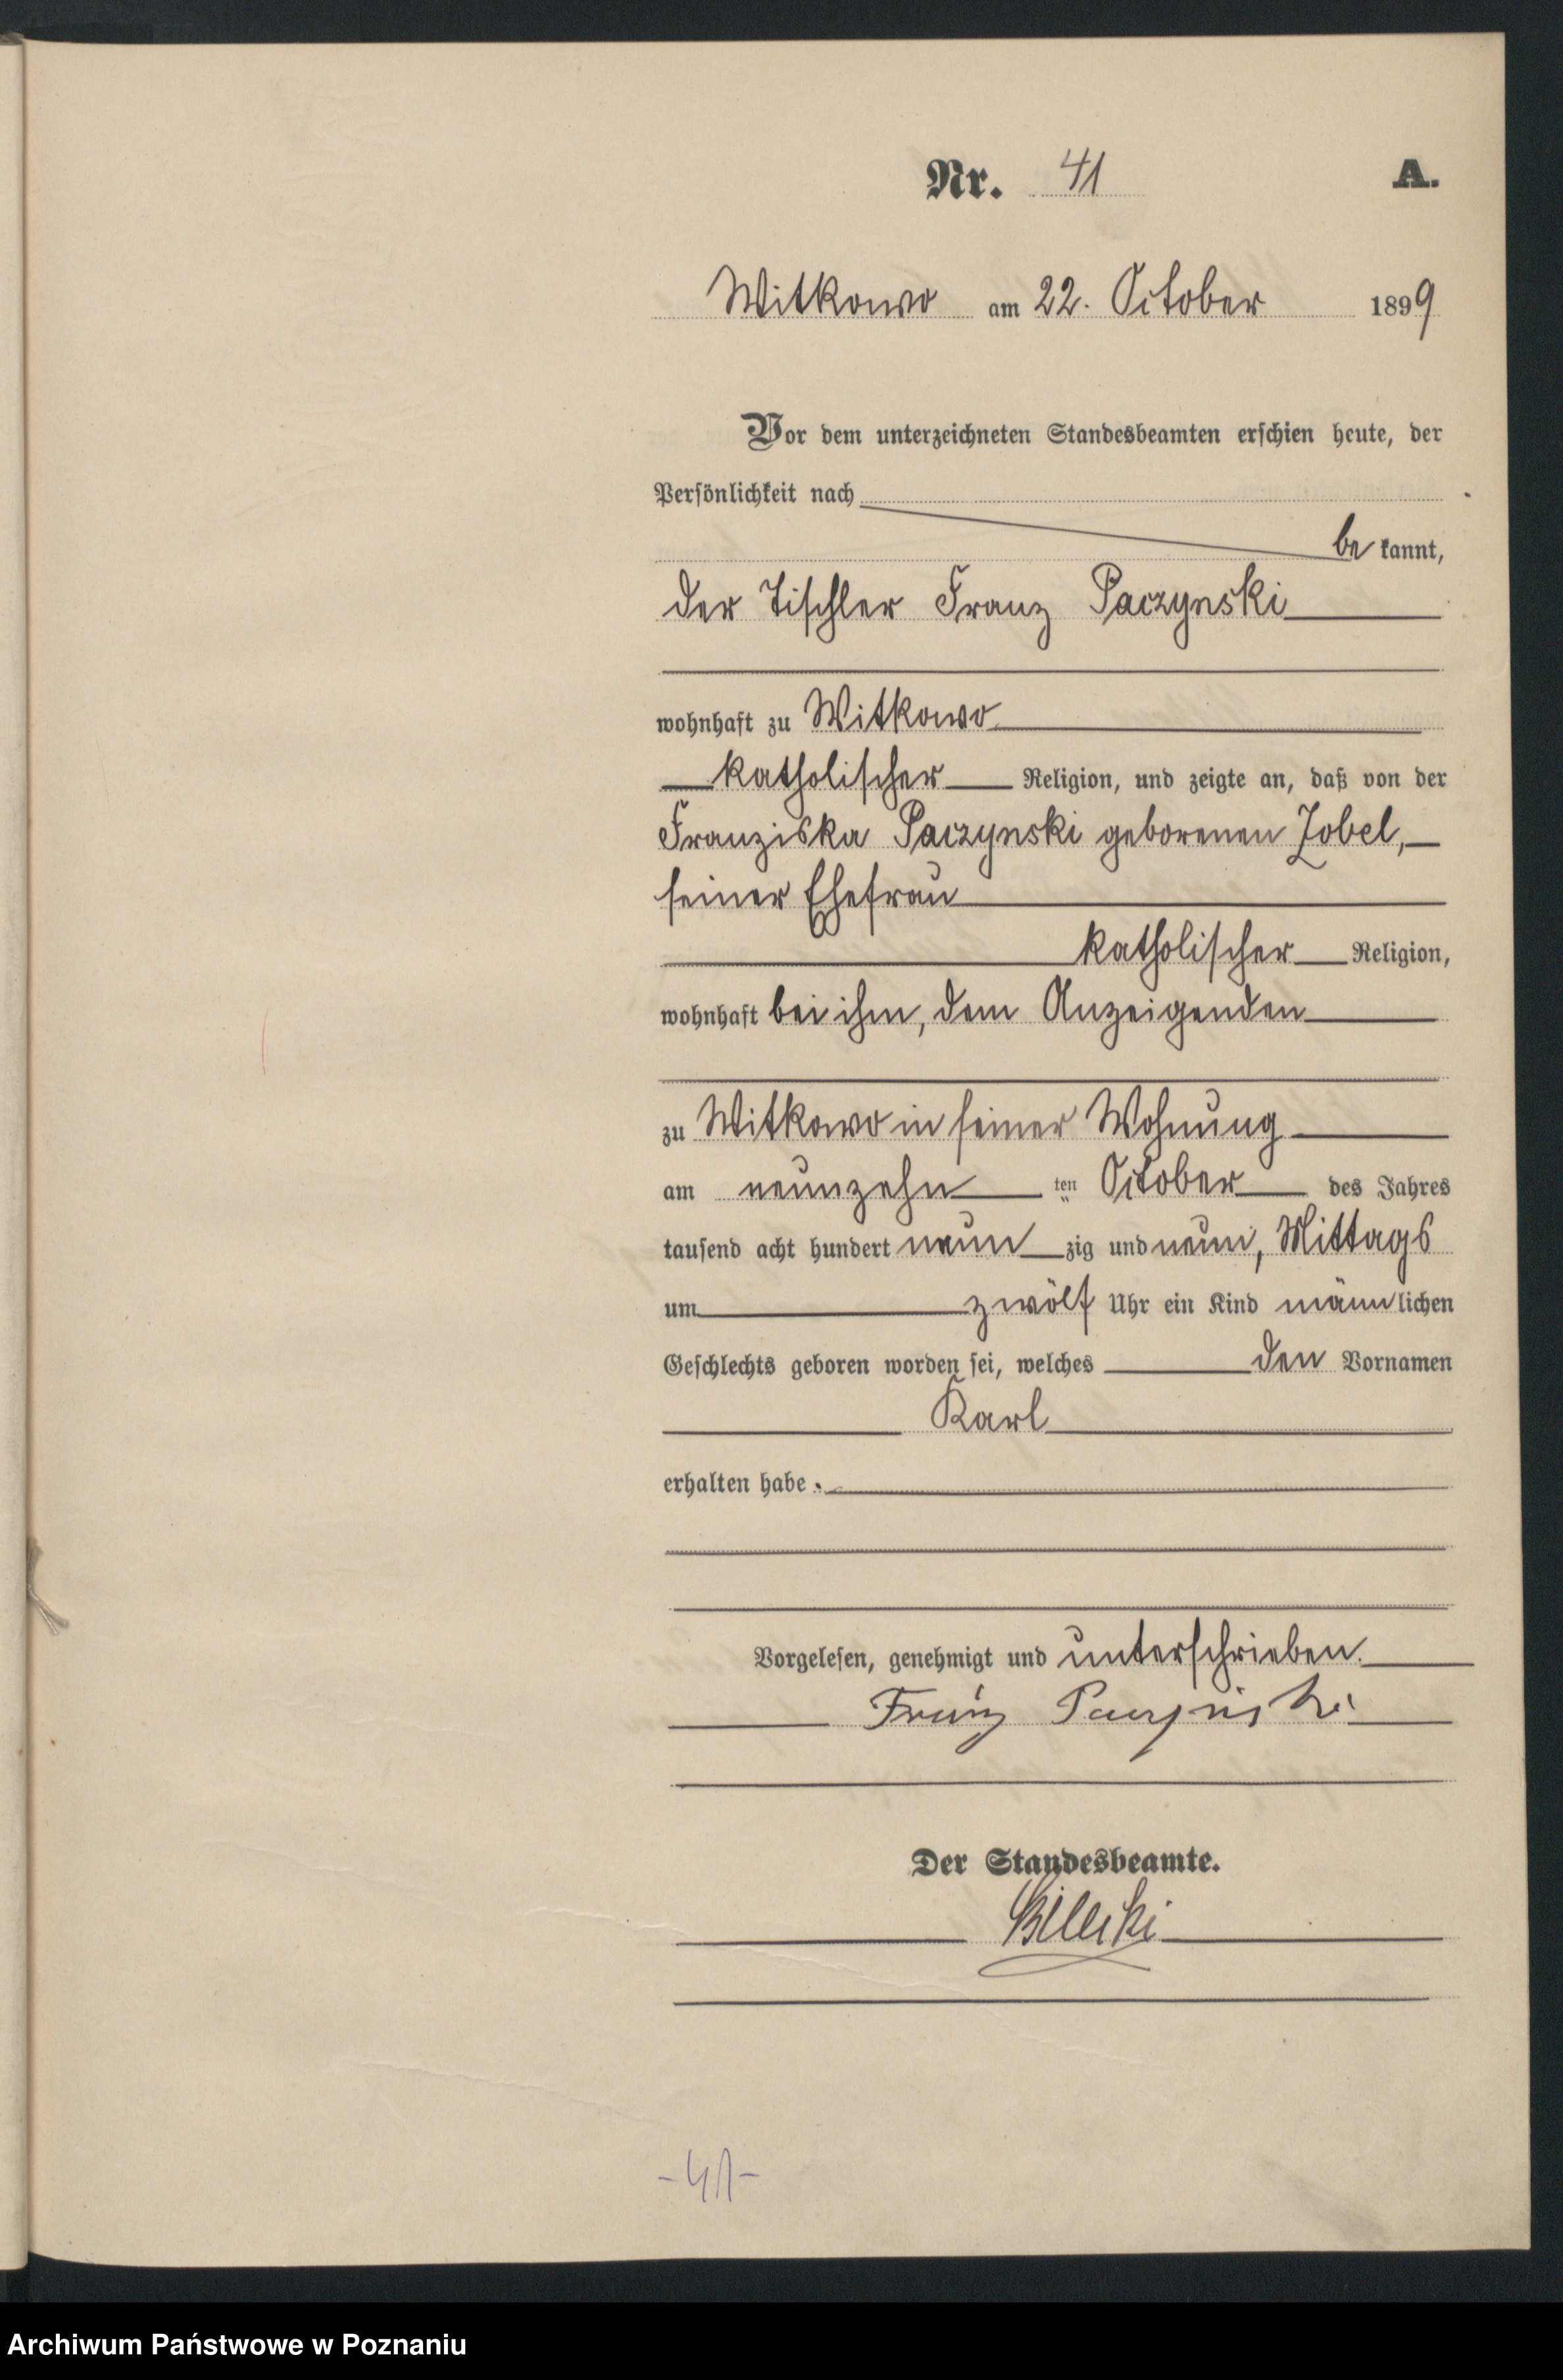 Nr. 41 A.
Witkowo am 22. October 1899
Vor dem unterzeichneten Standesbeamten erschien heute, der
Persönlichkeit nach
be kannt,
der Tischler Franz Paczynski
wohnhaft zu Witkowo
katholischer Religion, und zeigte an, daß von der
Franziska Paczynski geborenen Zobel,
seiner Ehefrau
katholischer Religion,
wohnhaft bei ihm, dem Anzeigenden
zu Witkowo in seiner Wohnung
am neunzehn ten October des Jahres
tausend acht hundert neun zig und neun, Mittags
um zwölf Uhr ein Kind männlichen
Geschlechts geboren worden sei, welches den Vornamen
Karl
erhalten habe.
Vorgelesen, genehmigt und unterschrieben.
Franz Paczyński
Der Standesbeamte.
-41-
Archiwum Państwowe w Poznaniu